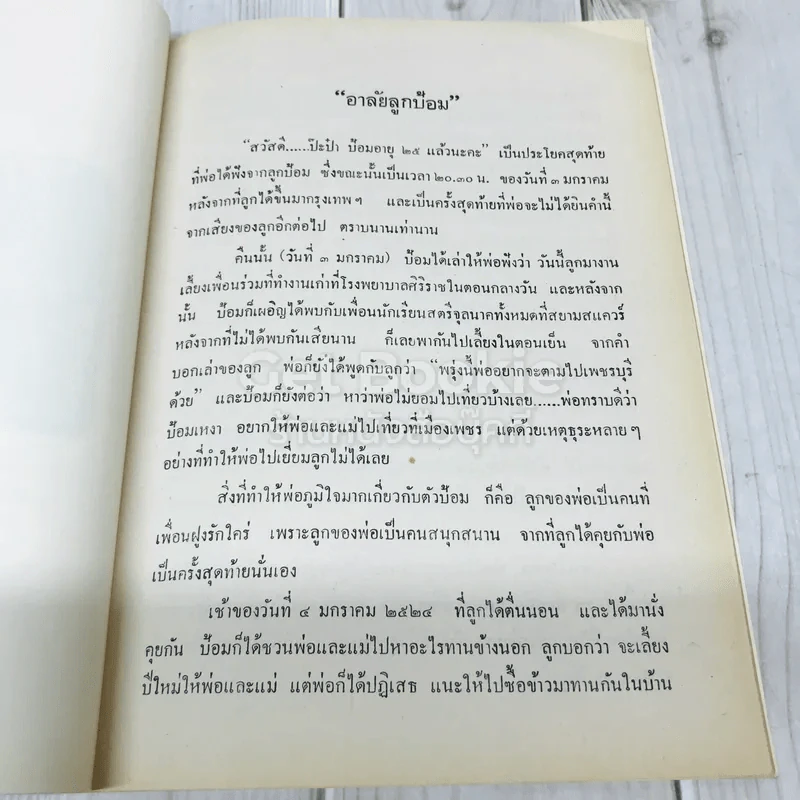 “อาลัยลูกป้อม”
“สวัสดี......ป๊ะป๋า ป้อมอายุ ๒๕ แล้วนะคะ” เป็นประโยคสุดท้าย
ที่พ่อได้ฟังจากลูกป้อม ซึ่งขณะนั้นเป็นเวลา ๒๐.๓๐ น. ของวันที่ ๓ มกราคม
หลังจากที่ลูกได้ขึ้นมากรุงเทพฯ และเป็นครั้งสุดท้ายที่พ่อจะไม่ได้ยินคำนี้
จากเสียงของลูกอีกต่อไป ตราบนานเท่านาน
คืนนั้น (วันที่ ๓ มกราคม) ป้อมได้เล่าให้พ่อฟังว่า วันนี้ลูกมางาน
เลี้ยงเพื่อนร่วมที่ทำงานเก่าที่โรงพยาบาลศิริราชในตอนกลางวัน และหลังจาก
นั้น ป้อมก็เผอิญได้พบกับเพื่อนนักเรียนสตรีจุลนาคทั้งหมดที่สยามสแควร์
หลังจากที่ไม่ได้พบกันเสียนาน ก็เลยพากันไปเลี้ยงในตอนเย็น จากคำ
บอกเล่าของลูก พ่อก็ยังได้พูดกับลูกว่า “พรุ่งนี้พ่ออยากจะตามไปเพชรบุรี
ด้วย” และป้อมก็ยังต่อว่า หาว่าพ่อไม่ยอมไปเที่ยวบ้างเลย......พ่อทราบดีว่า
ป้อมเหงา อยากให้พ่อและแม่ไปเที่ยวที่เมืองเพชร แต่ด้วยเหตุธุระหลายๆ
อย่างที่ทำให้พ่อไปเยี่ยมลูกไม่ได้เลย
สิ่งที่ทำให้พ่อภูมิใจมากเกี่ยวกับตัวป้อม ก็คือ ลูกของพ่อเป็นคนที่
เพื่อนฝูงรักใคร่ เพราะลูกของพ่อเป็นคนสนุกสนาน จากที่ลูกได้คุยกับพ่อ
เป็นครั้งสุดท้ายนั่นเอง
เช้าของวันที่ ๔ มกราคม ๒๕๒๔ ที่ลูกได้ตื่นนอน และได้มานั่ง
คุยกัน ป้อมก็ได้ชวนพ่อและแม่ไปหาอะไรทานข้างนอก ลูกบอกว่า จะเลี้ยง
ปีใหม่ให้พ่อและแม่ แต่พ่อก็ได้ปฏิเสธ แนะให้ไปซื้อข้าวมาทานกันในบ้าน
Get Bookie
ร้านหนังสือบุ๊คกี้